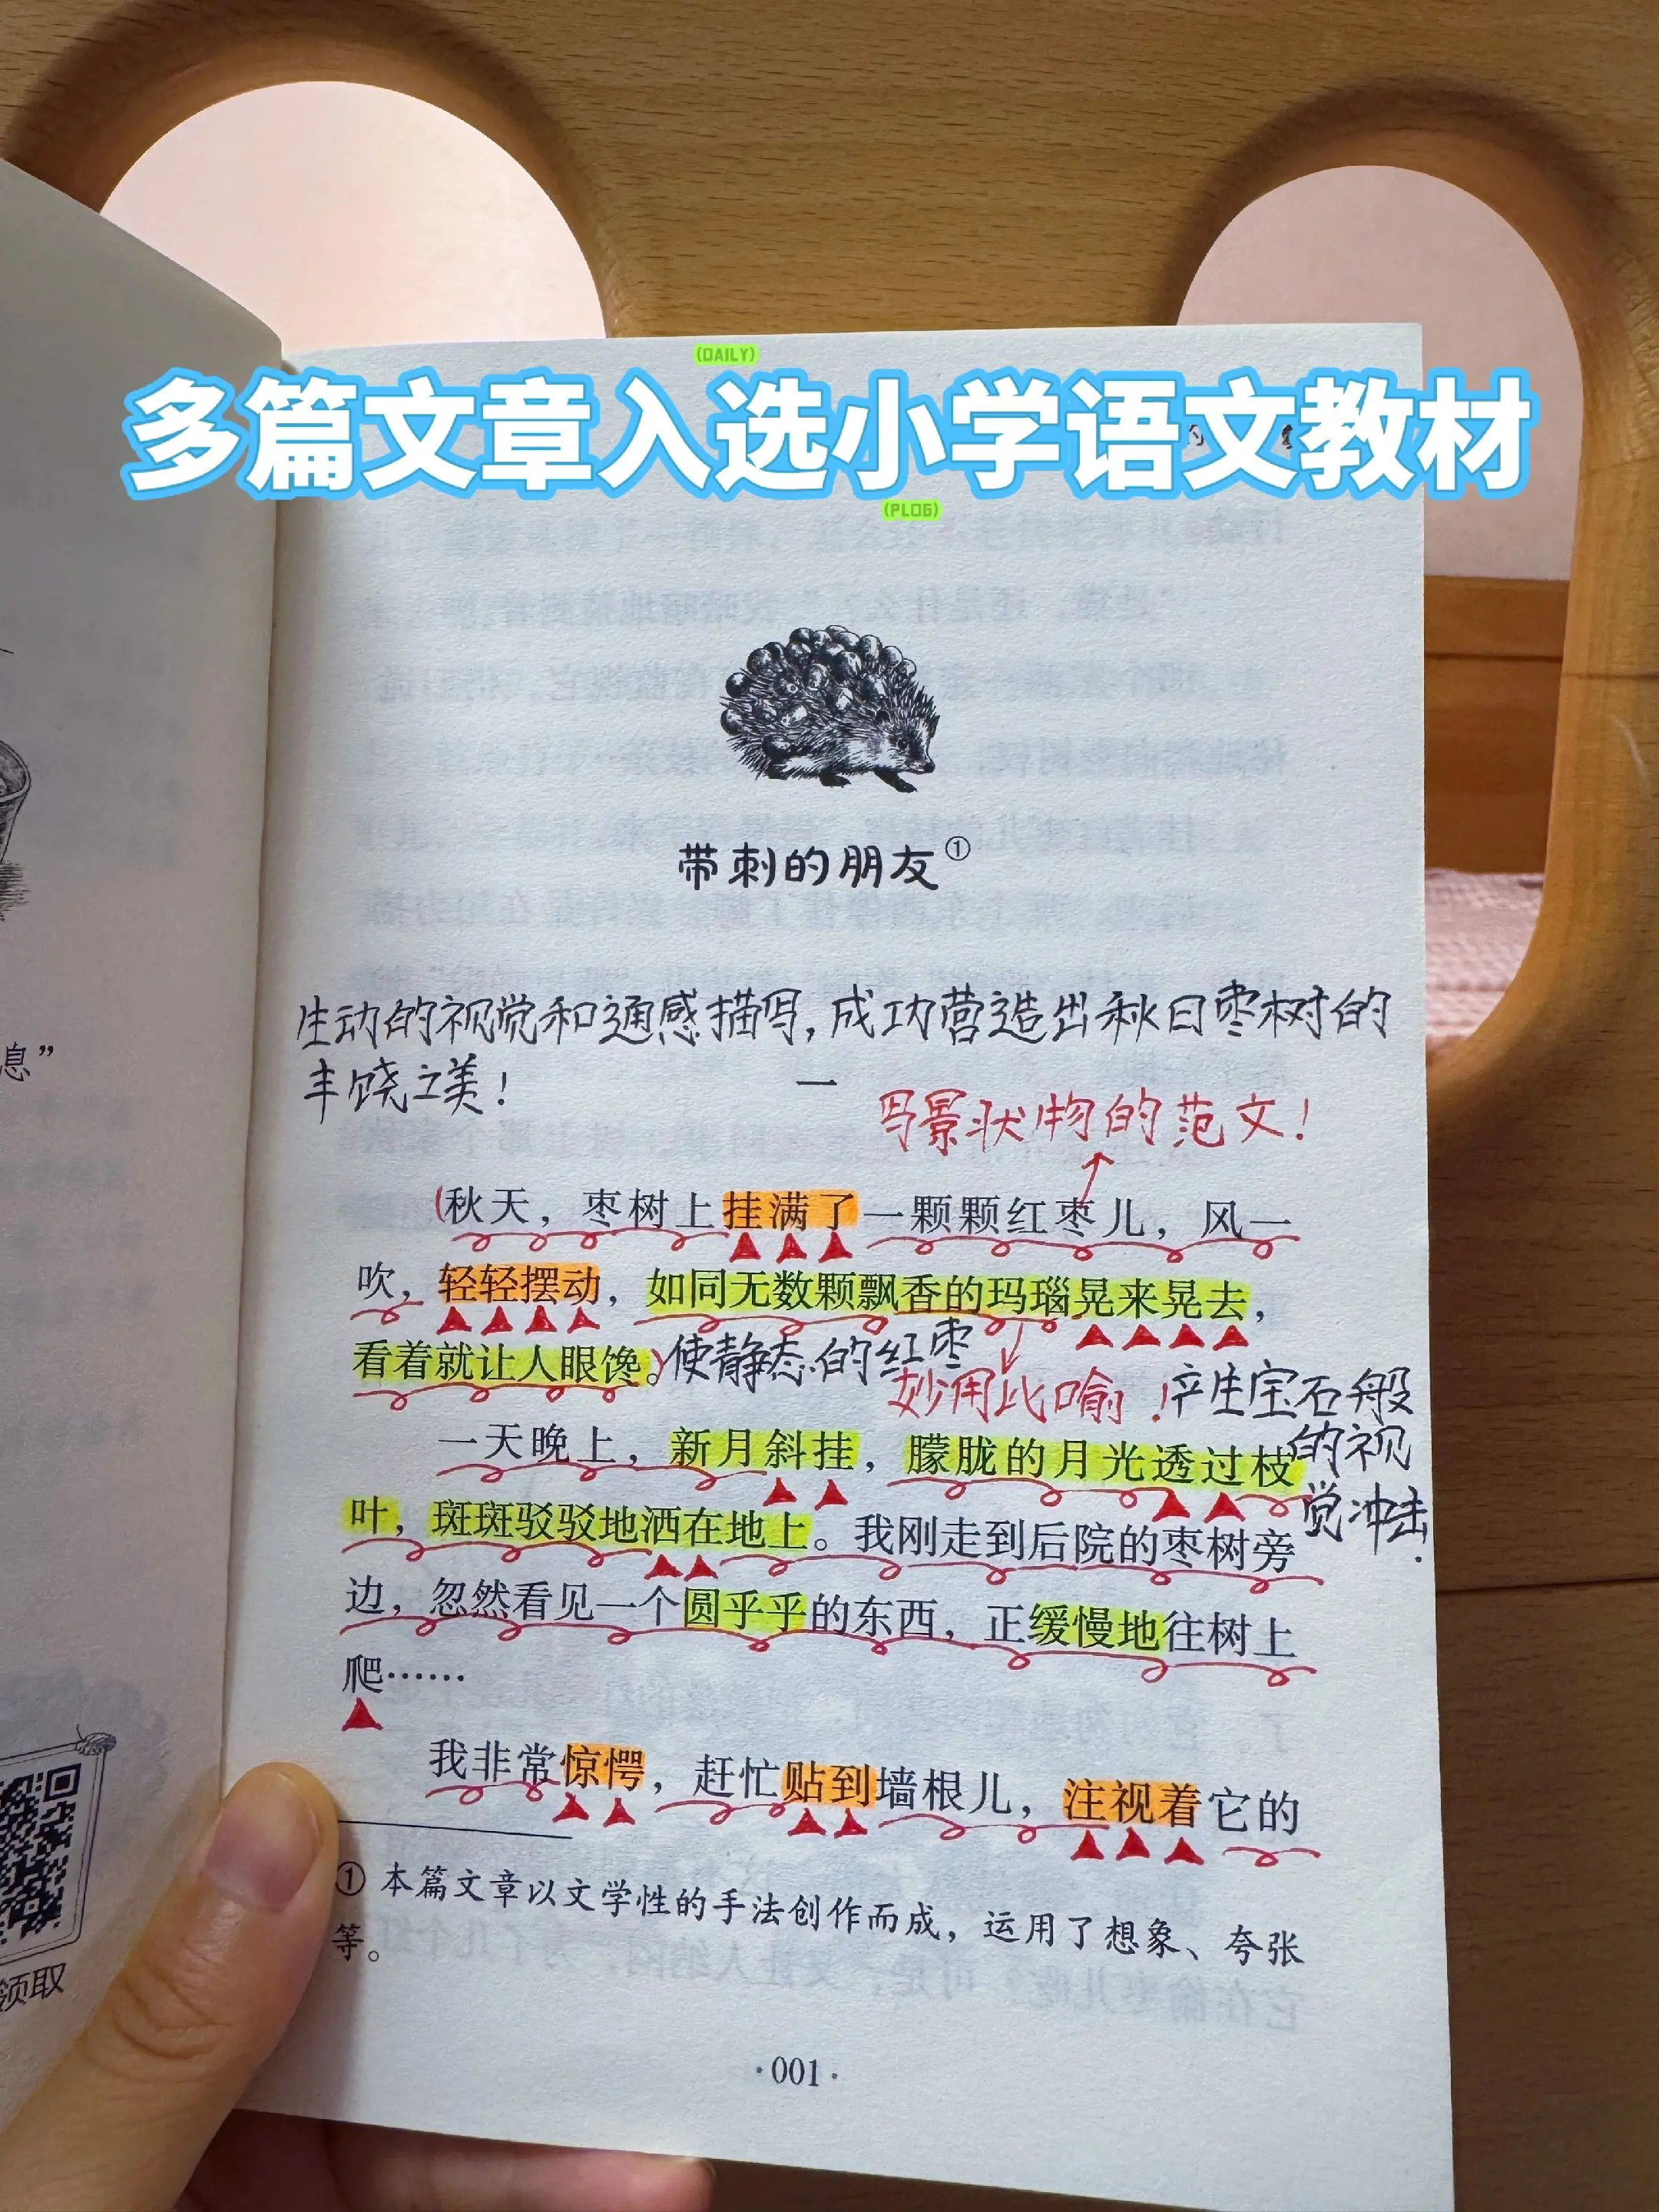 (DAILY)
多篇文章入选小学语文教材
(PLOG)
带刺的朋友①
生动的视觉和通感描写,成功营造出秋日枣树的
丰饶之美!
一
写景状物的范文!
(秋天，枣树上挂满了一颗颗红枣儿，风一
吹，轻轻摆动，如同无数颗飘香的玛瑙晃来晃去，
看着就让人眼馋。)
使静态的红枣
妙用比喻!
产生宝石般
的视
觉冲击.
一天晚上，新月斜挂，朦胧的月光透过枝
叶，斑斑驳驳地洒在地上。我刚走到后院的枣树旁
边，忽然看见一个圆乎乎的东西，正缓慢地往树上
爬……
我非常惊愕，赶忙贴到墙根儿，注视着它的
① 本篇文章以文学性的手法创作而成，运用了想象、夸张
等。
·001·
息”
领取